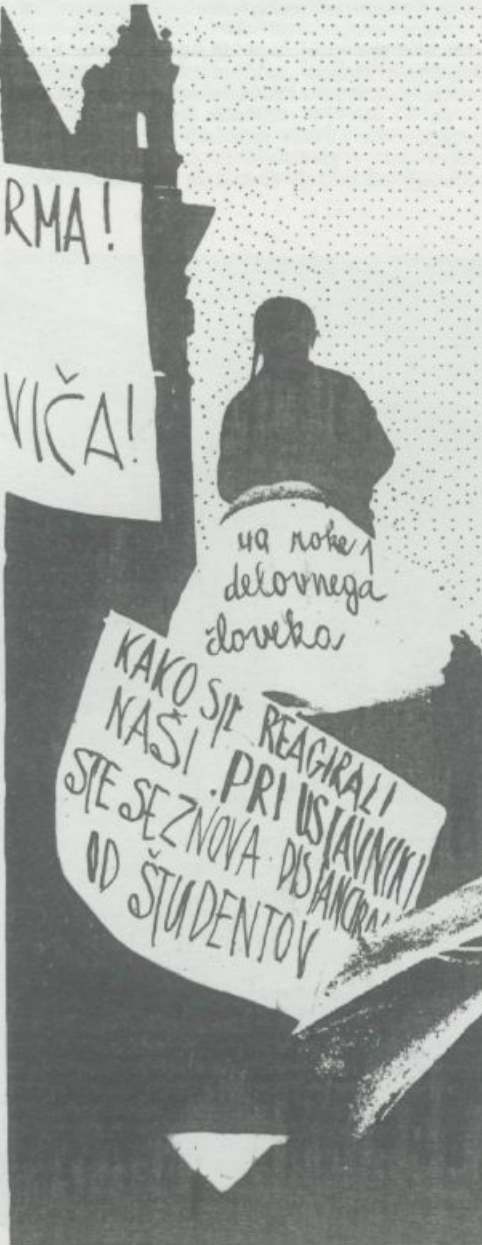 RMA!
VIČA!
delovnega
človeka
KAKO STE REAGIRALI
NAŠI . PRI USTAVNIKI
STE SE ZNOVA DISTANCIRA
OD ŠTUDENTOV